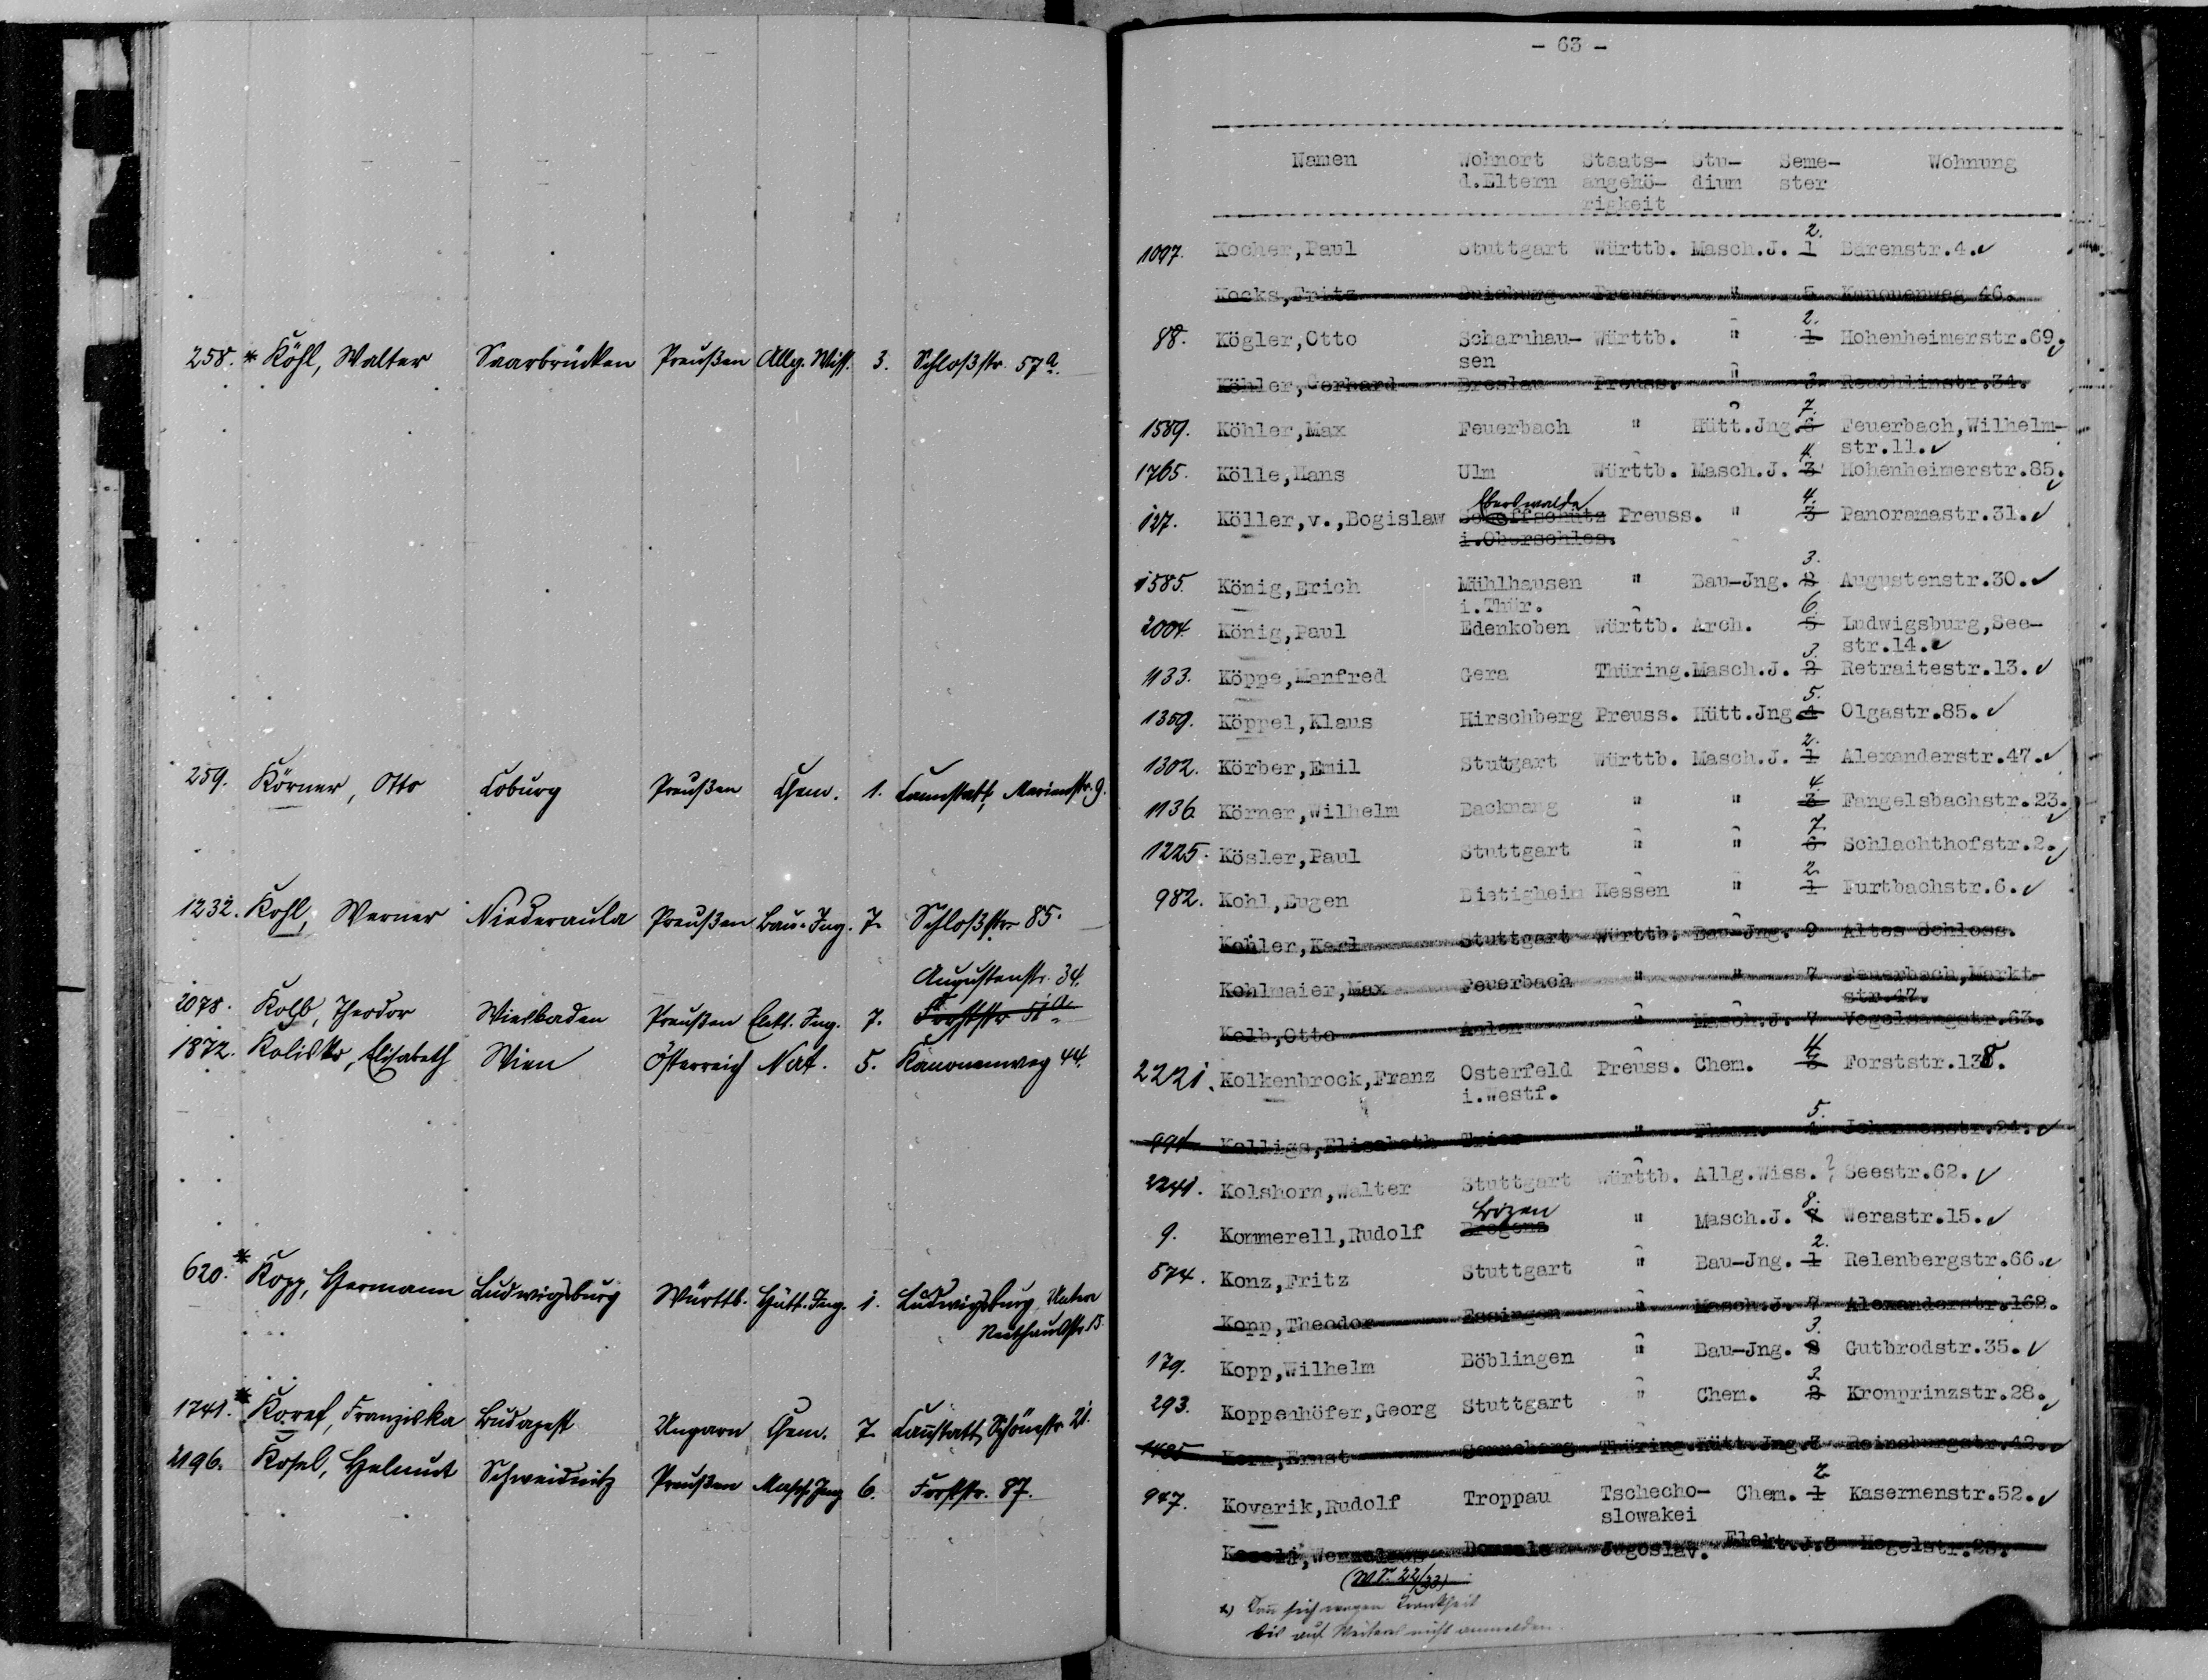 258. * Köhl, Walter Saarbrücken Preußen Allg. Wiss. 3. Schloßstr. 57a.
259. Körner, Otto Coburg Preußen Chem. 1. Cannstatt, Marienstr. 9.
1232. Kohl, Werner Niederaula Preußen Bau-Ing. 7. Schloßstr. 85.
Augustenstr. 34.
2078. Kolb, Theodor Wiesbaden Preußen Elekt. Ing. 7. Forststr.
1872. Kolisko, Elisabeth Wien Österreich Nat. 5. Kanonenweg 44.
620. * Kopp, Hermann Ludwigsburg Württb. Hütt. Ing. 1. Ludwigsburg, Untere
Reithausstr. 15.
1741. * Koref, Franziska Budapest Ungarn Chem. 7. Cannstatt, Schönestr. 21.
2196. Kosel, Helmut Schweidnitz Preußen Masch. Ing. 6. Forststr. 87.
- 63 -
Namen Wohnort Staats- Stu- Seme- Wohnung
d.Eltern angehö- dium ster
rigkeit
2.
1097. Kocher,Paul Stuttgart Württb. Masch.J. 1 Bärenstr.4. ✓
Kocks,Fritz Duisburg Preuss. " 5 Kanonenweg 46.
2.
88. Kögler,Otto Scharnhau- Württb. " 1 Hohenheimerstr.69. ✓
sen
Köhler,Gerhard Breslau Preuss. " 3 Reuchlinstr.34.
7.
1589. Köhler,Max Feuerbach " Hütt.Jng. 6 Feuerbach,Wilhelm-
str.11. ✓
4.
1765. Kölle,Hans Ulm Württb. Masch.J. 3 Hohenheimerstr.85. ✓
Eberswalde 4.
127. Köller,v.,Bogislaw Preuss. " 3 Panoramastr.31. ✓
i.Oberschles.
3.
1585. König,Erich Mühlhausen " Bau-Jng. 2 Augustenstr.30. ✓
i.Thür.
6.
2004. König,Paul Edenkoben Württb. Arch. 5 Ludwigsburg,See-
str.14. ✓
3.
1133. Köppe,Manfred Gera Thüring. Masch.J. 2 Retraitestr.13. ✓
5.
1359. Köppel,Klaus Hirschberg Preuss. Hütt.Jng 4 Olgastr.85. ✓
2.
1302. Körber,Emil Stuttgart Württb. Masch.J. 1 Alexanderstr.47. ✓
4.
1136. Körner,Wilhelm Backnang " " 3 Fangelsbachstr.23. ✓
7.
1225. Kösler,Paul Stuttgart " " 6 Schlachthofstr.2. ✓
2.
982. Kohl,Eugen Bietigheim Hessen " 1 Furtbachstr.6. ✓
Kohler,Karl Stuttgart Württb. Bau-Jng. 9 Altes Schloss.
Kohlmaier,Max Feuerbach " " 7 Feuerbach,Markt-
str.17.
Kolb,Otto Aalen " Masch.J. 7 Vogelsangstr.63.
4
2221. Kolkenbrock,Franz Osterfeld Preuss. Chem. 3 Forststr.138.
i.Westf.
5.
994 Kolligs,Elisabeth Trier " Pharm. 4 Johannesstr.24. ✓
2241. Kolshorn,Walter Stuttgart Württb. Allg.Wiss. ? Seestr.62. ✓
Bozen 8.
9. Kommerell,Rudolf Bregenz " Masch.J. 7 Werastr.15. ✓
2.
574. Konz,Fritz Stuttgart " Bau-Jng. 1 Relenbergstr.66. ✓
Kopp,Theodor Essingen " Masch.J. 7 Alexanderstr.162.
3.
179. Kopp,Wilhelm Böblingen " Bau-Jng. 2 Gutbrodstr.35. ✓
3.
293. Koppenhöfer,Georg Stuttgart " Chem. 2 Kronprinzstr.28. ✓
1485 Korn,Ernst Sonneberg Thüring. Hütt.Jng. 7 Reinsburgstr.42. ✓
2.
947. Kovarik,Rudolf Troppau Tschecho- Chem. 1 Kasernenstr.52. ✓
slowakei
Jugoslav. Elekt.J. 3 Hegelstr.23.
(WS. 22/23)
x) Kann sich wegen Krankheit
bis auf Weiteres nicht anmelden.